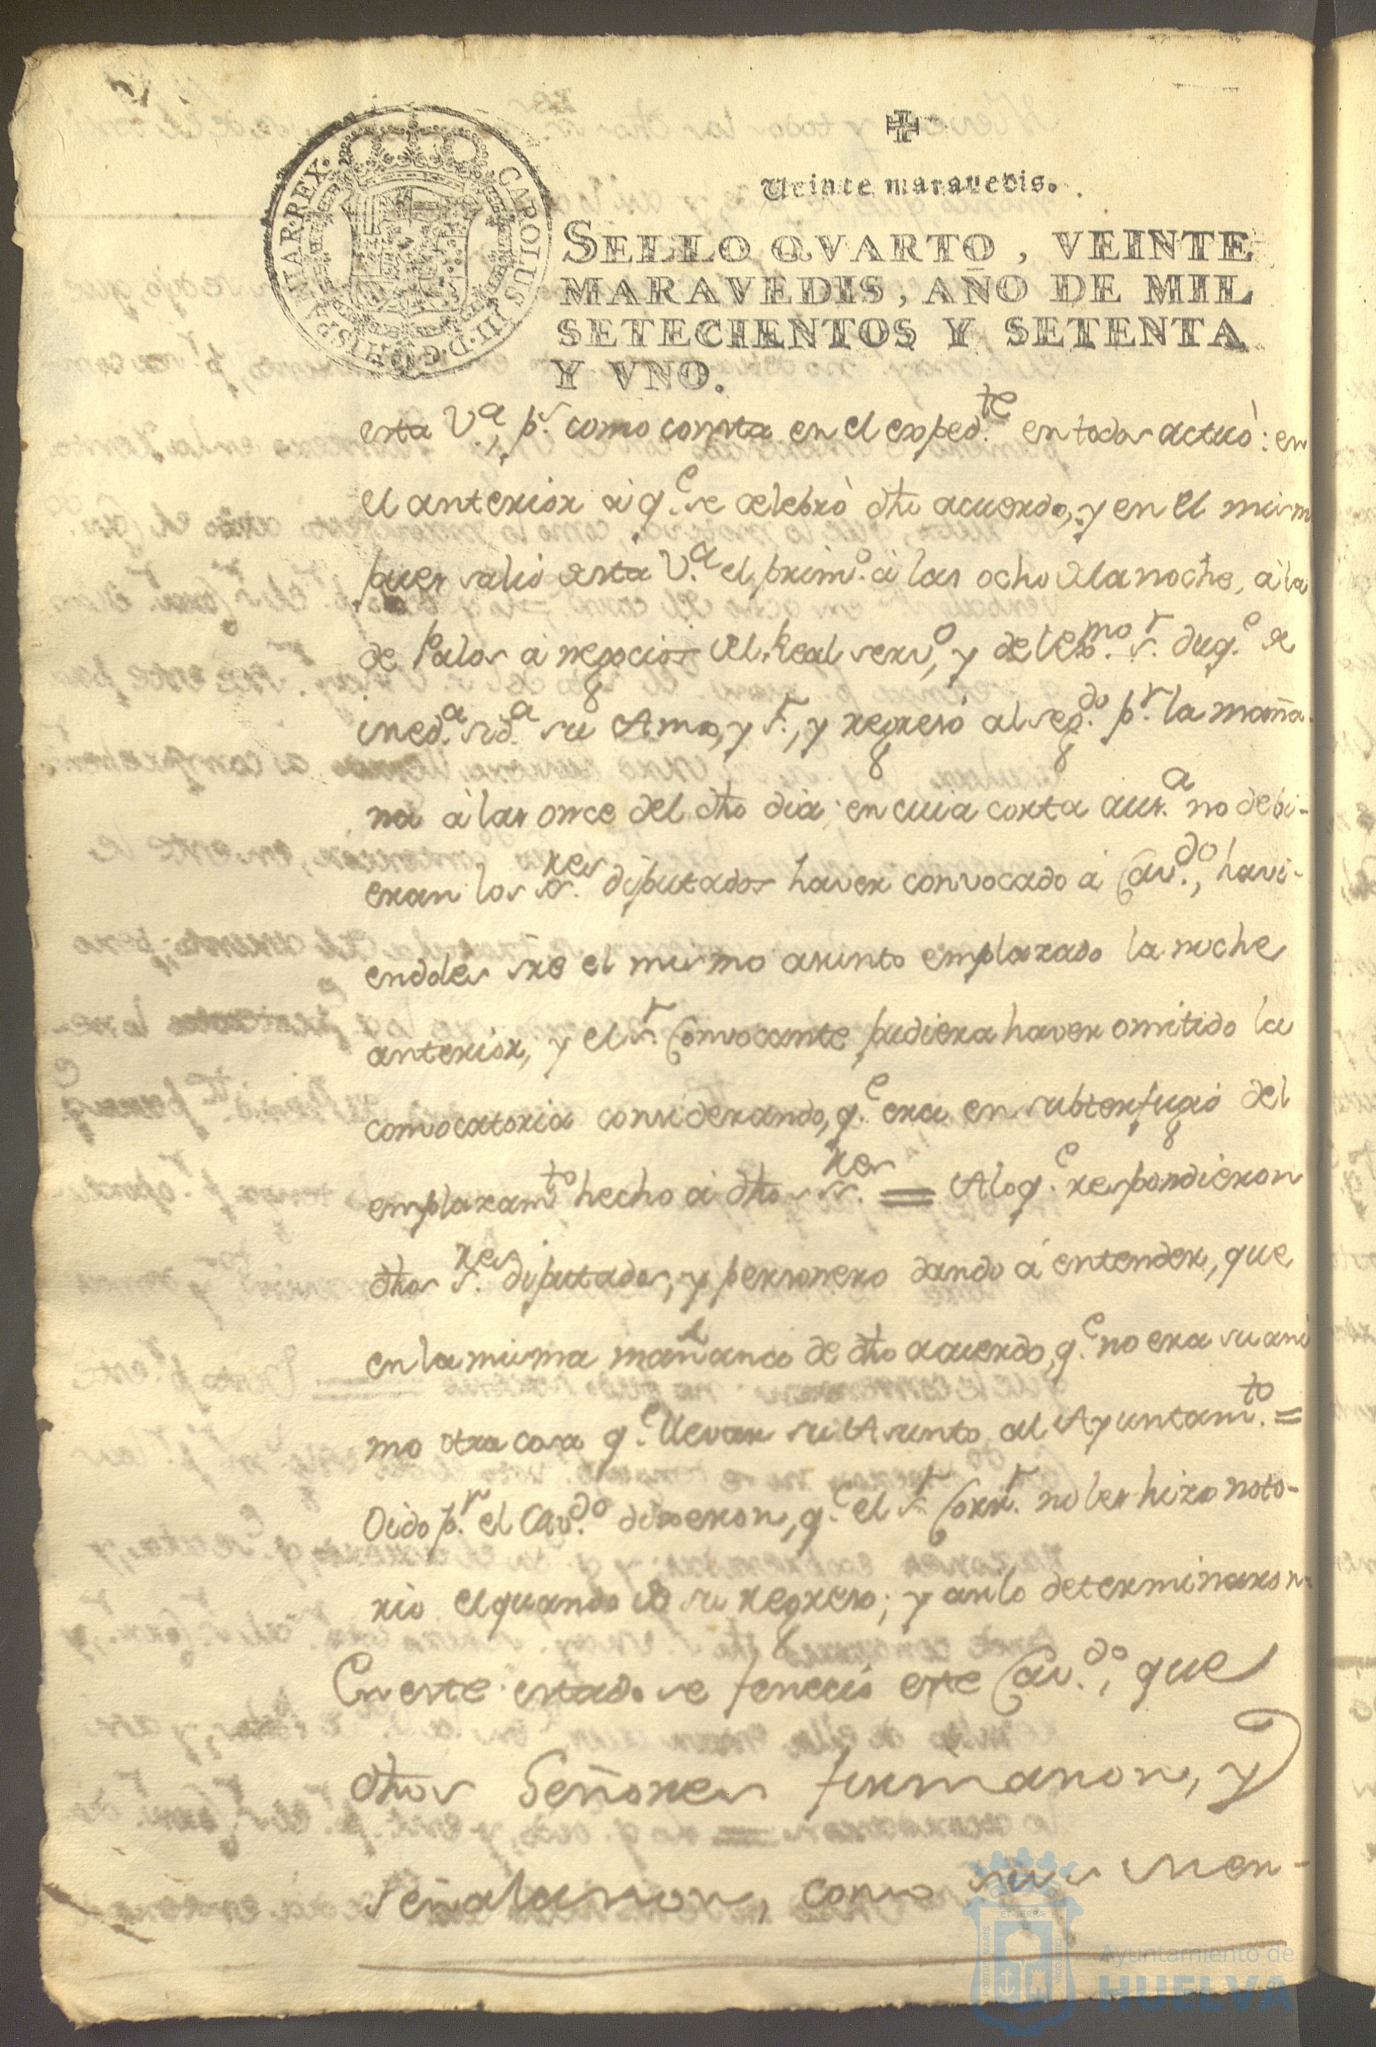 Veinte maravedis.
CAROLUS III D.G. HISPANIAR REX.
SELLO QVARTO, VEINTE
MARAVEDIS, AÑO DE MIL
SETECIENTOS Y SETENTA
Y VNO.
esta V.ª, p.r como consta en el exped.te en todos actuò: en
el anterior á q.e se celebrò dho acuerdo, y en el mism
pues saliò esta V.ª el prim.º á las ocho de la noche, á la
de Palos á negocios del Real serv.º, y del Exmo. S.r duq.e de
Med.ª sid.ª su Amo, y S.r, y regresò al seg.do p.r la maña-
na á las once del dho dia: en cuia corta aus.ª no debi-
eran los S.res diputados haver convocado á Cav.do, havi-
endoles sre el mismo asunto emplazado la noche
anterior, y el S.r Convocante pudiera haver omitido la
convocatoria considerando, q.e era en subterfugio del
emplazam.to hecho á dhos SS.res = A lo q.e respondieron
dhos S.res diputados, y personero dando á entender, que
en la misma mañana de dho acuerdo, q.e no era su ani
mo otra cosa q.e llevar su Asunto al Ayuntam.to =
Oido p.r el Cav.do dixeron, q.e el S.r Corr.r no les hizo noto-
rio el quando de su regreso; y asi lo determinaron
En este estado se feneció este Cav.do, que
dhos Señores firmaron, y
señalaron, como sus Mer-
Ayuntamiento de
HUELVA